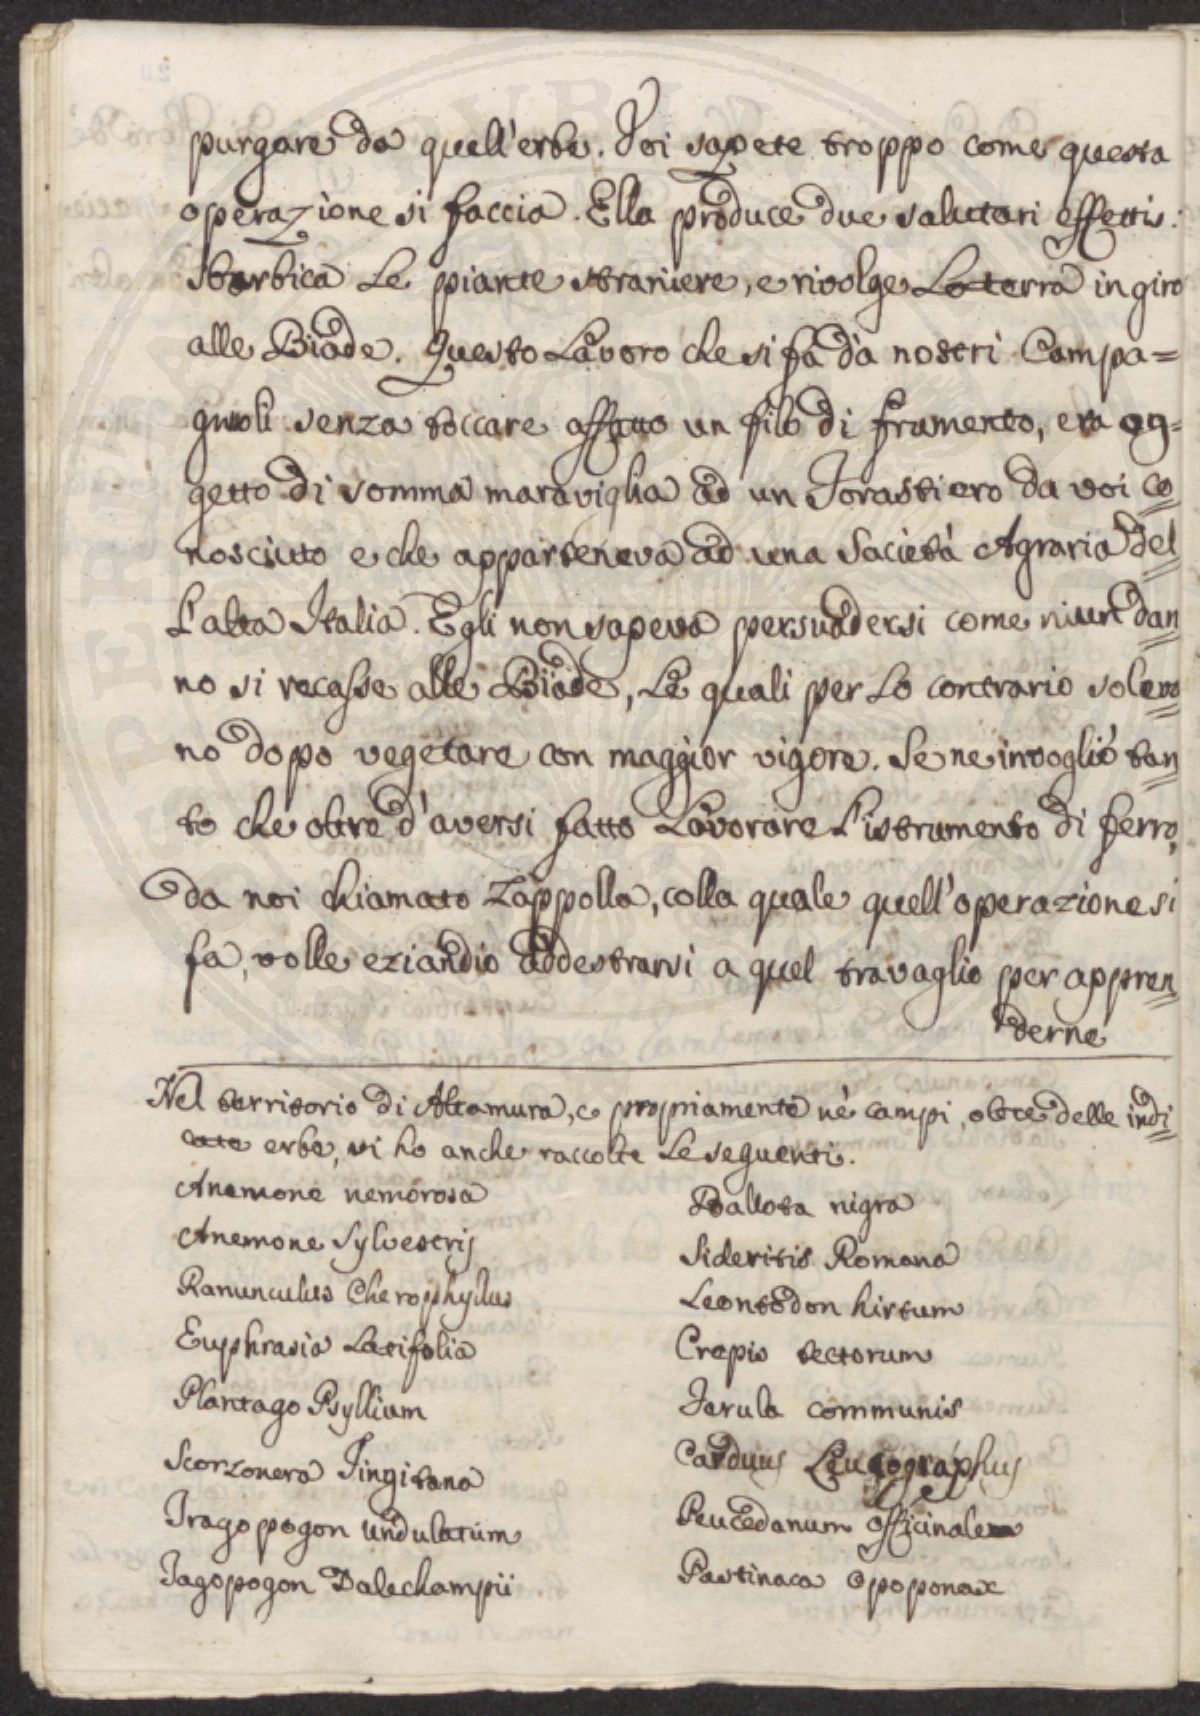 purgare da quell'erbe. Voi sapete troppo come questa
operazione si faccia. Ella produce due salutari effetti:
sbarbica le piante straniere, e rivolge la terra in giro
alle Biade. Questo Lavoro che si fa da nostri Campa=
gnuoli senza toccare affatto un filo di frumento, era og=
getto di somma maraviglia ad un Forastiero da voi co=
nosciuto e che apparteneva ad una Società Agraria del=
l'alta Italia. Egli non sapeva persuadersi come niun dan=
no si recasse alle Biade, le quali per lo contrario soleva=
no dopo vegetare con maggior vigore. Se ne invogliò tan=
to che oltre d'aversi fatto Lavorare l'istrumento di ferro,
da noi chiamato Zappolla, colla quale quell'operazione si
fa, volle eziandio addestrarsi a quel travaglio per appren=
derne
Nel territorio di Altamura, e propriamente nè campi, oltre delle indi=
cate erbe, vi ho anche raccolte le seguenti.
Anemone nemorosa
Anemone Sylvestris
Ranunculus Cherophyllus
Euphrasia Latifolia
Plantago Psyllium
Scorzonera Tingitana
Tragopogon undulatum
Tagopogon Dalechampii
Ballota nigra
Sideritis Romana
Leontodon hirtum
Crepis tectorum
Ferula communis
Carduus Leucographus
Peucedanum officinale
Pastinaca Opoponax